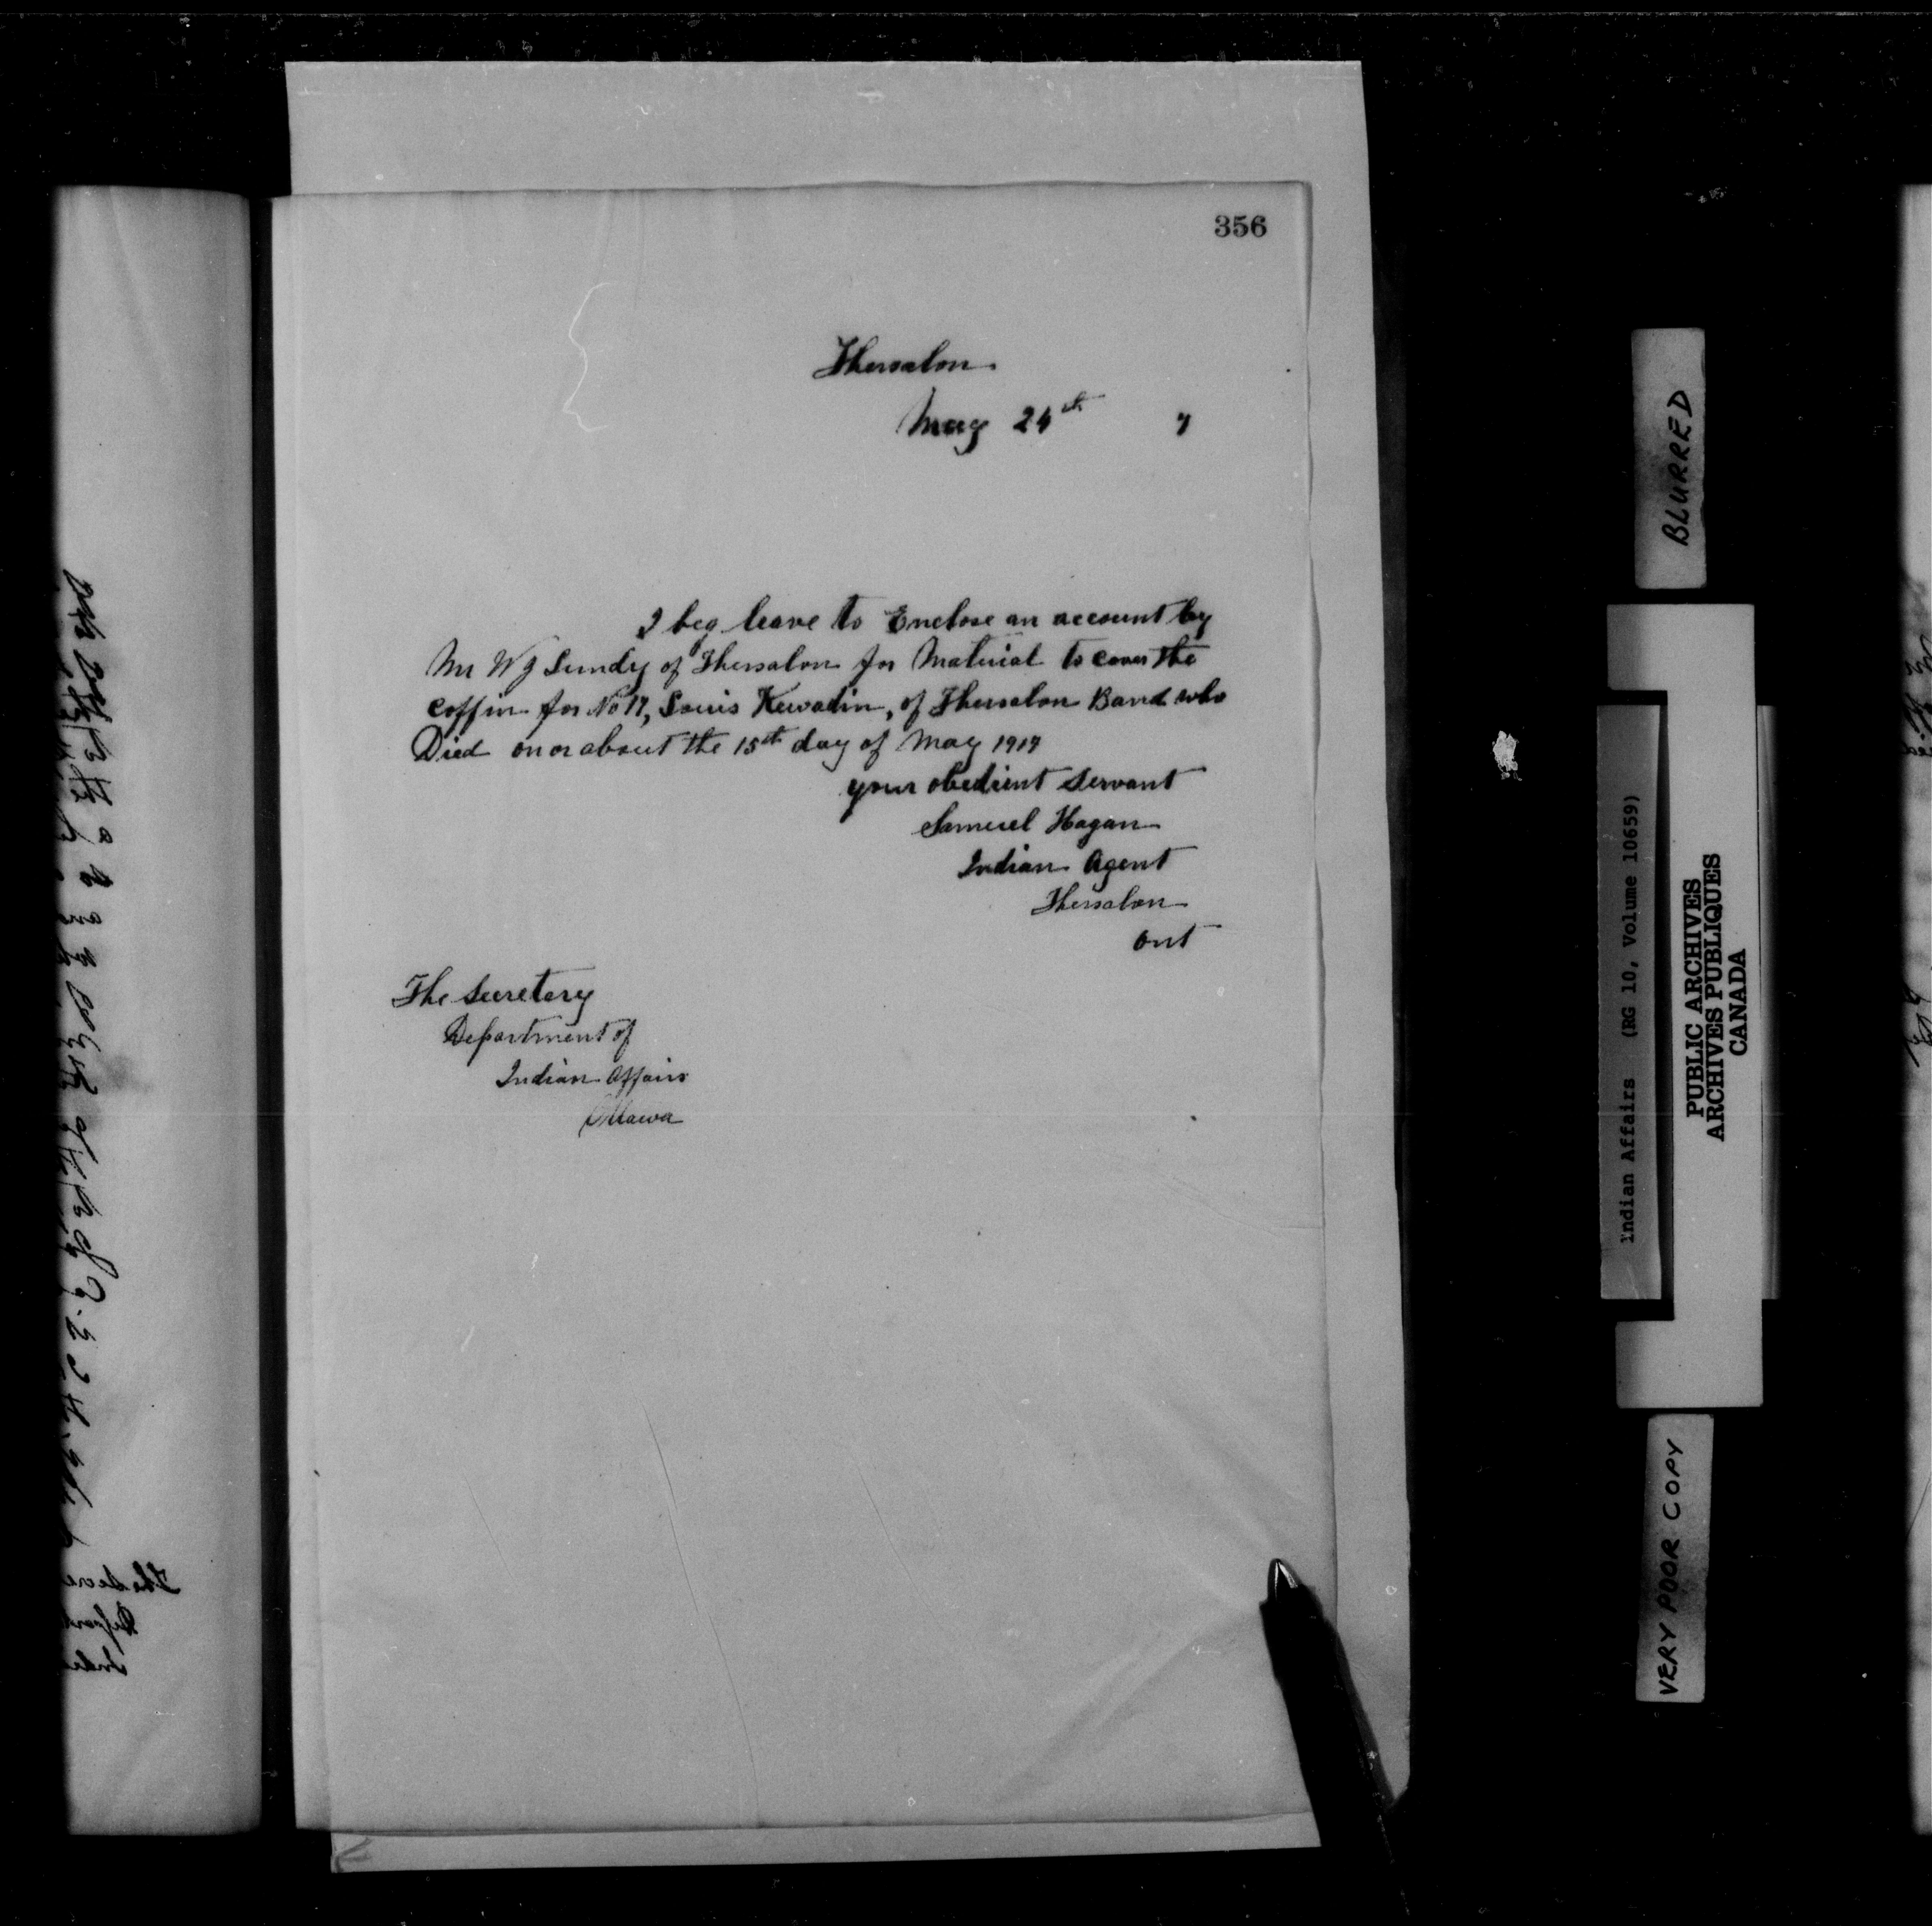 356
Thessalon
May 24th 7
I beg leave to Enclose an account by
Mr W J of Thessalon for Material to cover the
coffin for No 17, Louis Kewadin, of Thessalon Band who
Died on or about the 15th day of May 1917
your obedient servant
Samuel Hagan
Indian Agent
Thessalon
Ont
The Secretary
Department of
Indian Affairs
Ottawa
BLURRED
Indian Affairs (RG 10, Volume 10659)
PUBLIC ARCHIVES
ARCHIVES PUBLIQUES
CANADA
VERY POOR COPY